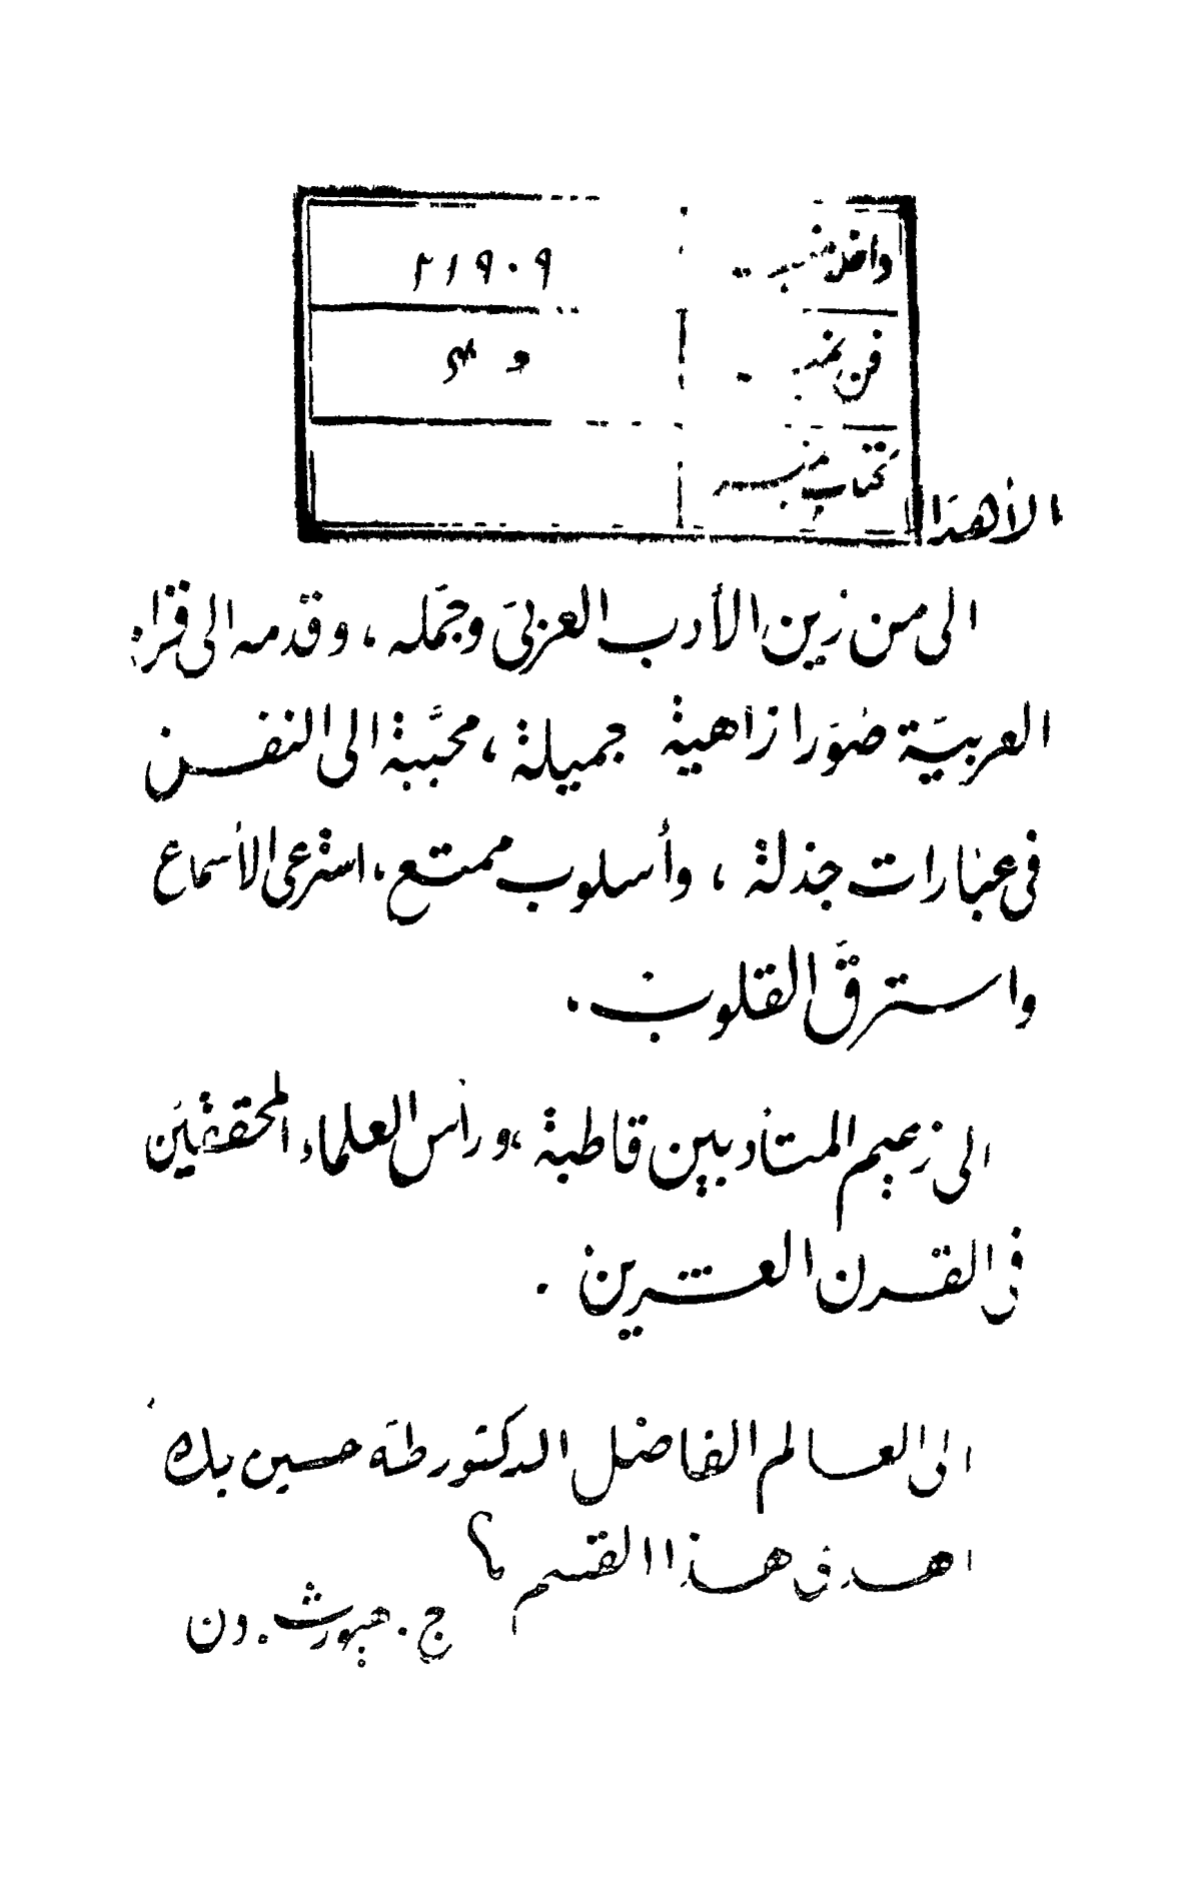 داخلہ نمبر ٢١٩٠٩
فن نمبر
کتاب نمبر
الأهداء
الى من زين الأدب العربىّ وجمّله ، وقدّمه الى قرّاء
العربيّة صُوَرا زاهية جميلة ، محبَّبة الى النفس
فى عبارات جذلة ، وأسلوب ممتع ، استرعى الأسماع
واسترقَّ القلوب .
الى زعيم المتأدبين قاطبة ، ورأس العلماء المحققين
فى القرن العشرين .
الى العالم الفاضل الدكتور طه حسين بك
اهدى هذا القسم
ج . هيورث . دن